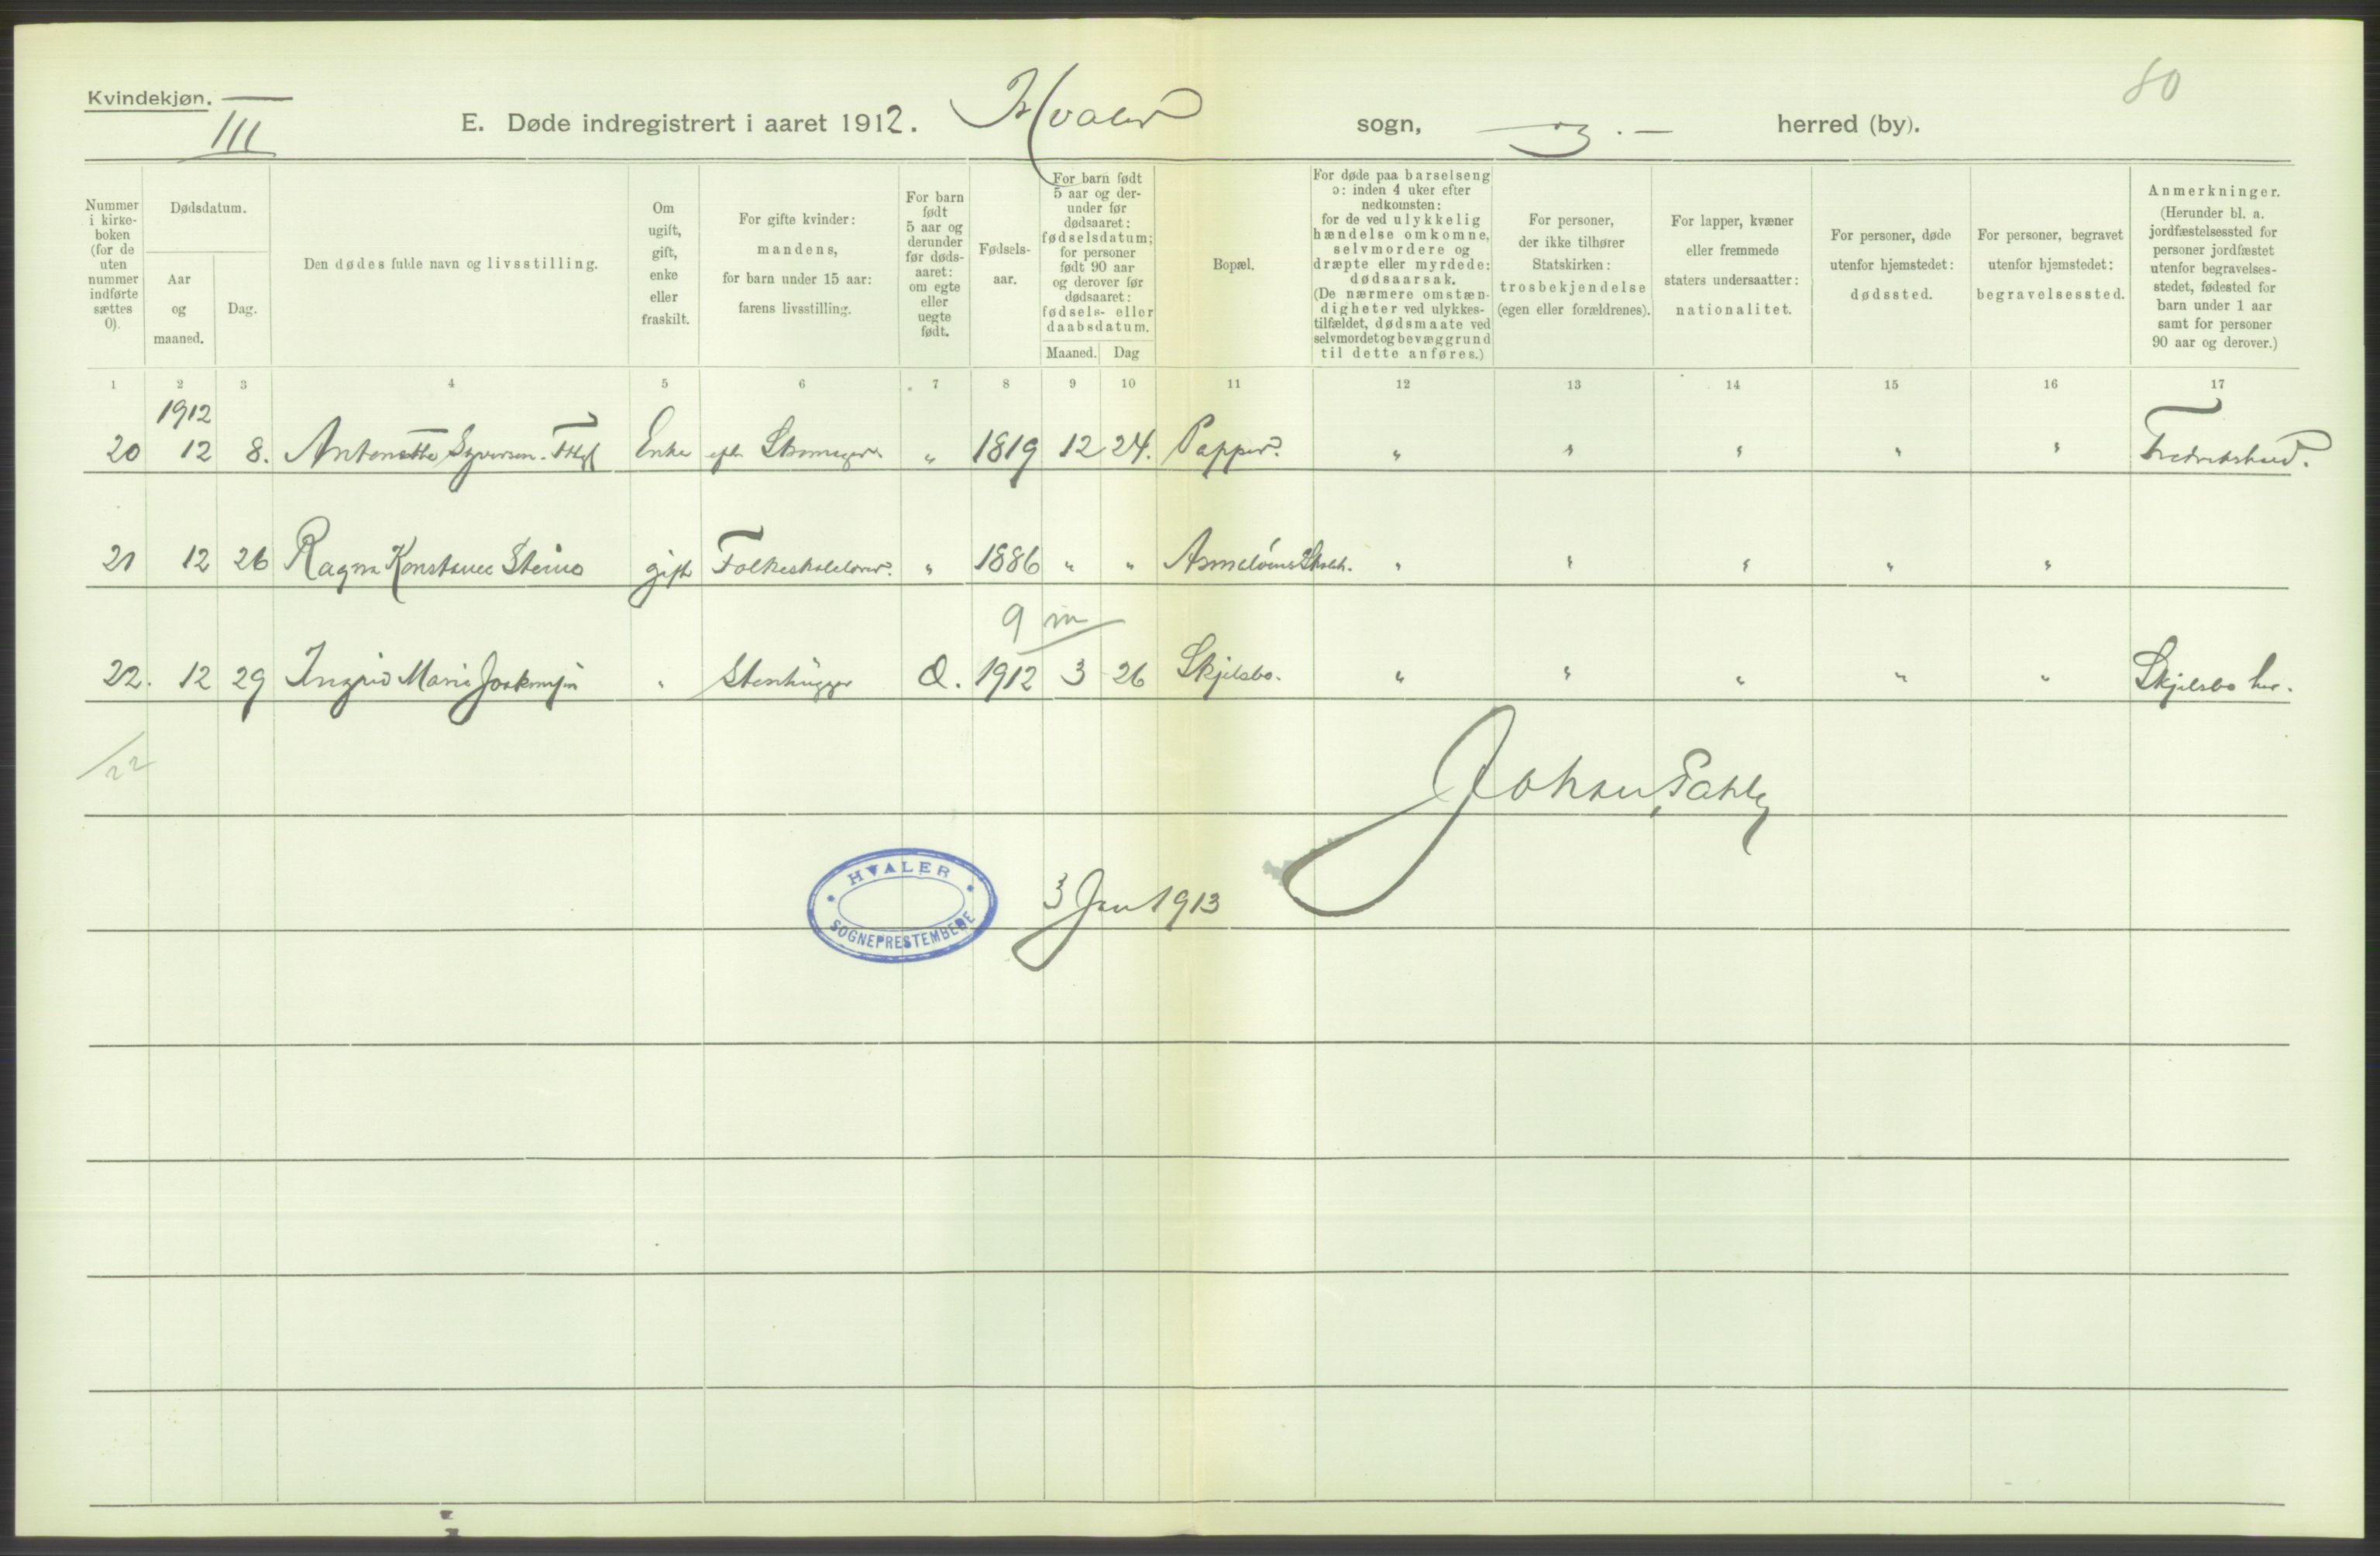 Kvindekjøn.
III
E. Døde indregistrert i aaret 1912. Hvaler sogn, herred (by).
80
Nummer i kirke- boken (for de uten nummer indførte sættes 0).
Dødsdatum.
Aar og maaned.
Dag.
Den dødes fulde navn og livsstilling.
Om ugift, gift, enke eller fraskilt.
For gifte kvinder: mandens, for barn under 15 aar: farens livsstilling.
For barn født 5 aar og derunder før døds- aaret: om egte eller uegte født.
Fødsels- aar.
For barn født 5 aar og der- under før dødsaaret: fødselsdatum; for personer født 90 aar og derover før dødsaaret: fødsels- eller daabsdatum.
Maaned. Dag
Bopæl.
For døde paa barselseng ɔ: inden 4 uker efter nedkomsten: for de ved ulykkelig hændelse omkomne, selvmordere og dræpte eller myrdede: dødsaarsak. (De nærmere omstæn- digheter ved ulykkes- tilfældet, dødsmaate ved selvmordet og bevæggrund til dette anføres.)
For personer, der ikke tilhører Statskirken: trosbekjendelse (egen eller forældrenes).
For lapper, kvæner eller fremmede staters undersaatter: nationalitet.
For personer, døde utenfor hjemstedet: dødssted.
For personer, begravet utenfor hjemstedet: begravelsessted.
Anmerkninger. (Herunder bl. a. jordfæstelsessted for personer jordfæstet utenfor begravelses- stedet, fødested for barn under 1 aar samt for personer 90 aar og derover.)
1 2 3 4 5 6 7 8 9 10 11 12 13 14 15 16 17
1912
20 12 8. Antonette Syversen Enke eft. Skomager " 1819 12 24. Papper. " " " " " Fredrikshald.
21 12 26 Ragna Konstance Steino gift Folkeskolelærer. " 1886 " " Asmaløens Skoleh. " " " " "
9 m
22. 12 29 Ingrid Marie " Stenhugger Æ. 1912 3 26 Skjelsbo. " " " " " Skjelsbo her.
22
Johan
HVALER
SOGNEPRESTEMBEDE
3 Jan 1913